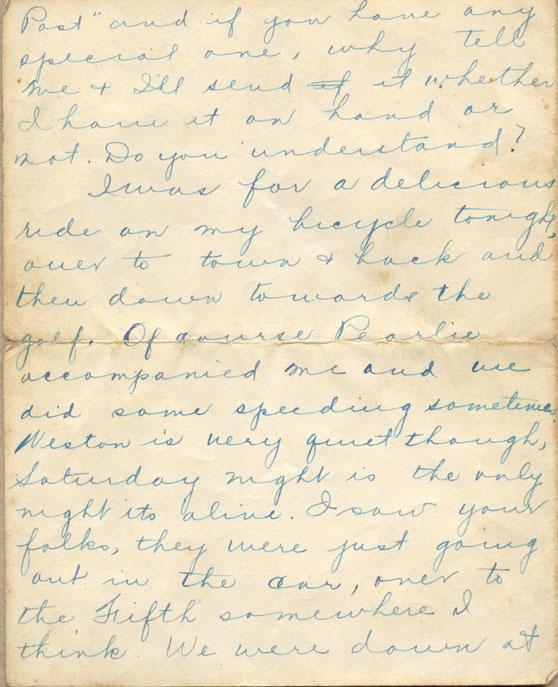 Post" and if you have any
special one, why tell
me & I'll send it whether
I have it on hand or
not. Do you understand?
I was for a delicious
ride on my bicycle tonight,
over to town & back and
then down towards the
golf. Of course Pearlie
accompanied me and we
did some speeding sometimes.
Weston is very quiet though,
Saturday night is the only
night its alive. I saw your
folks, they were just going
out in the car, over to
the Fifth somewhere I
think. We were down at